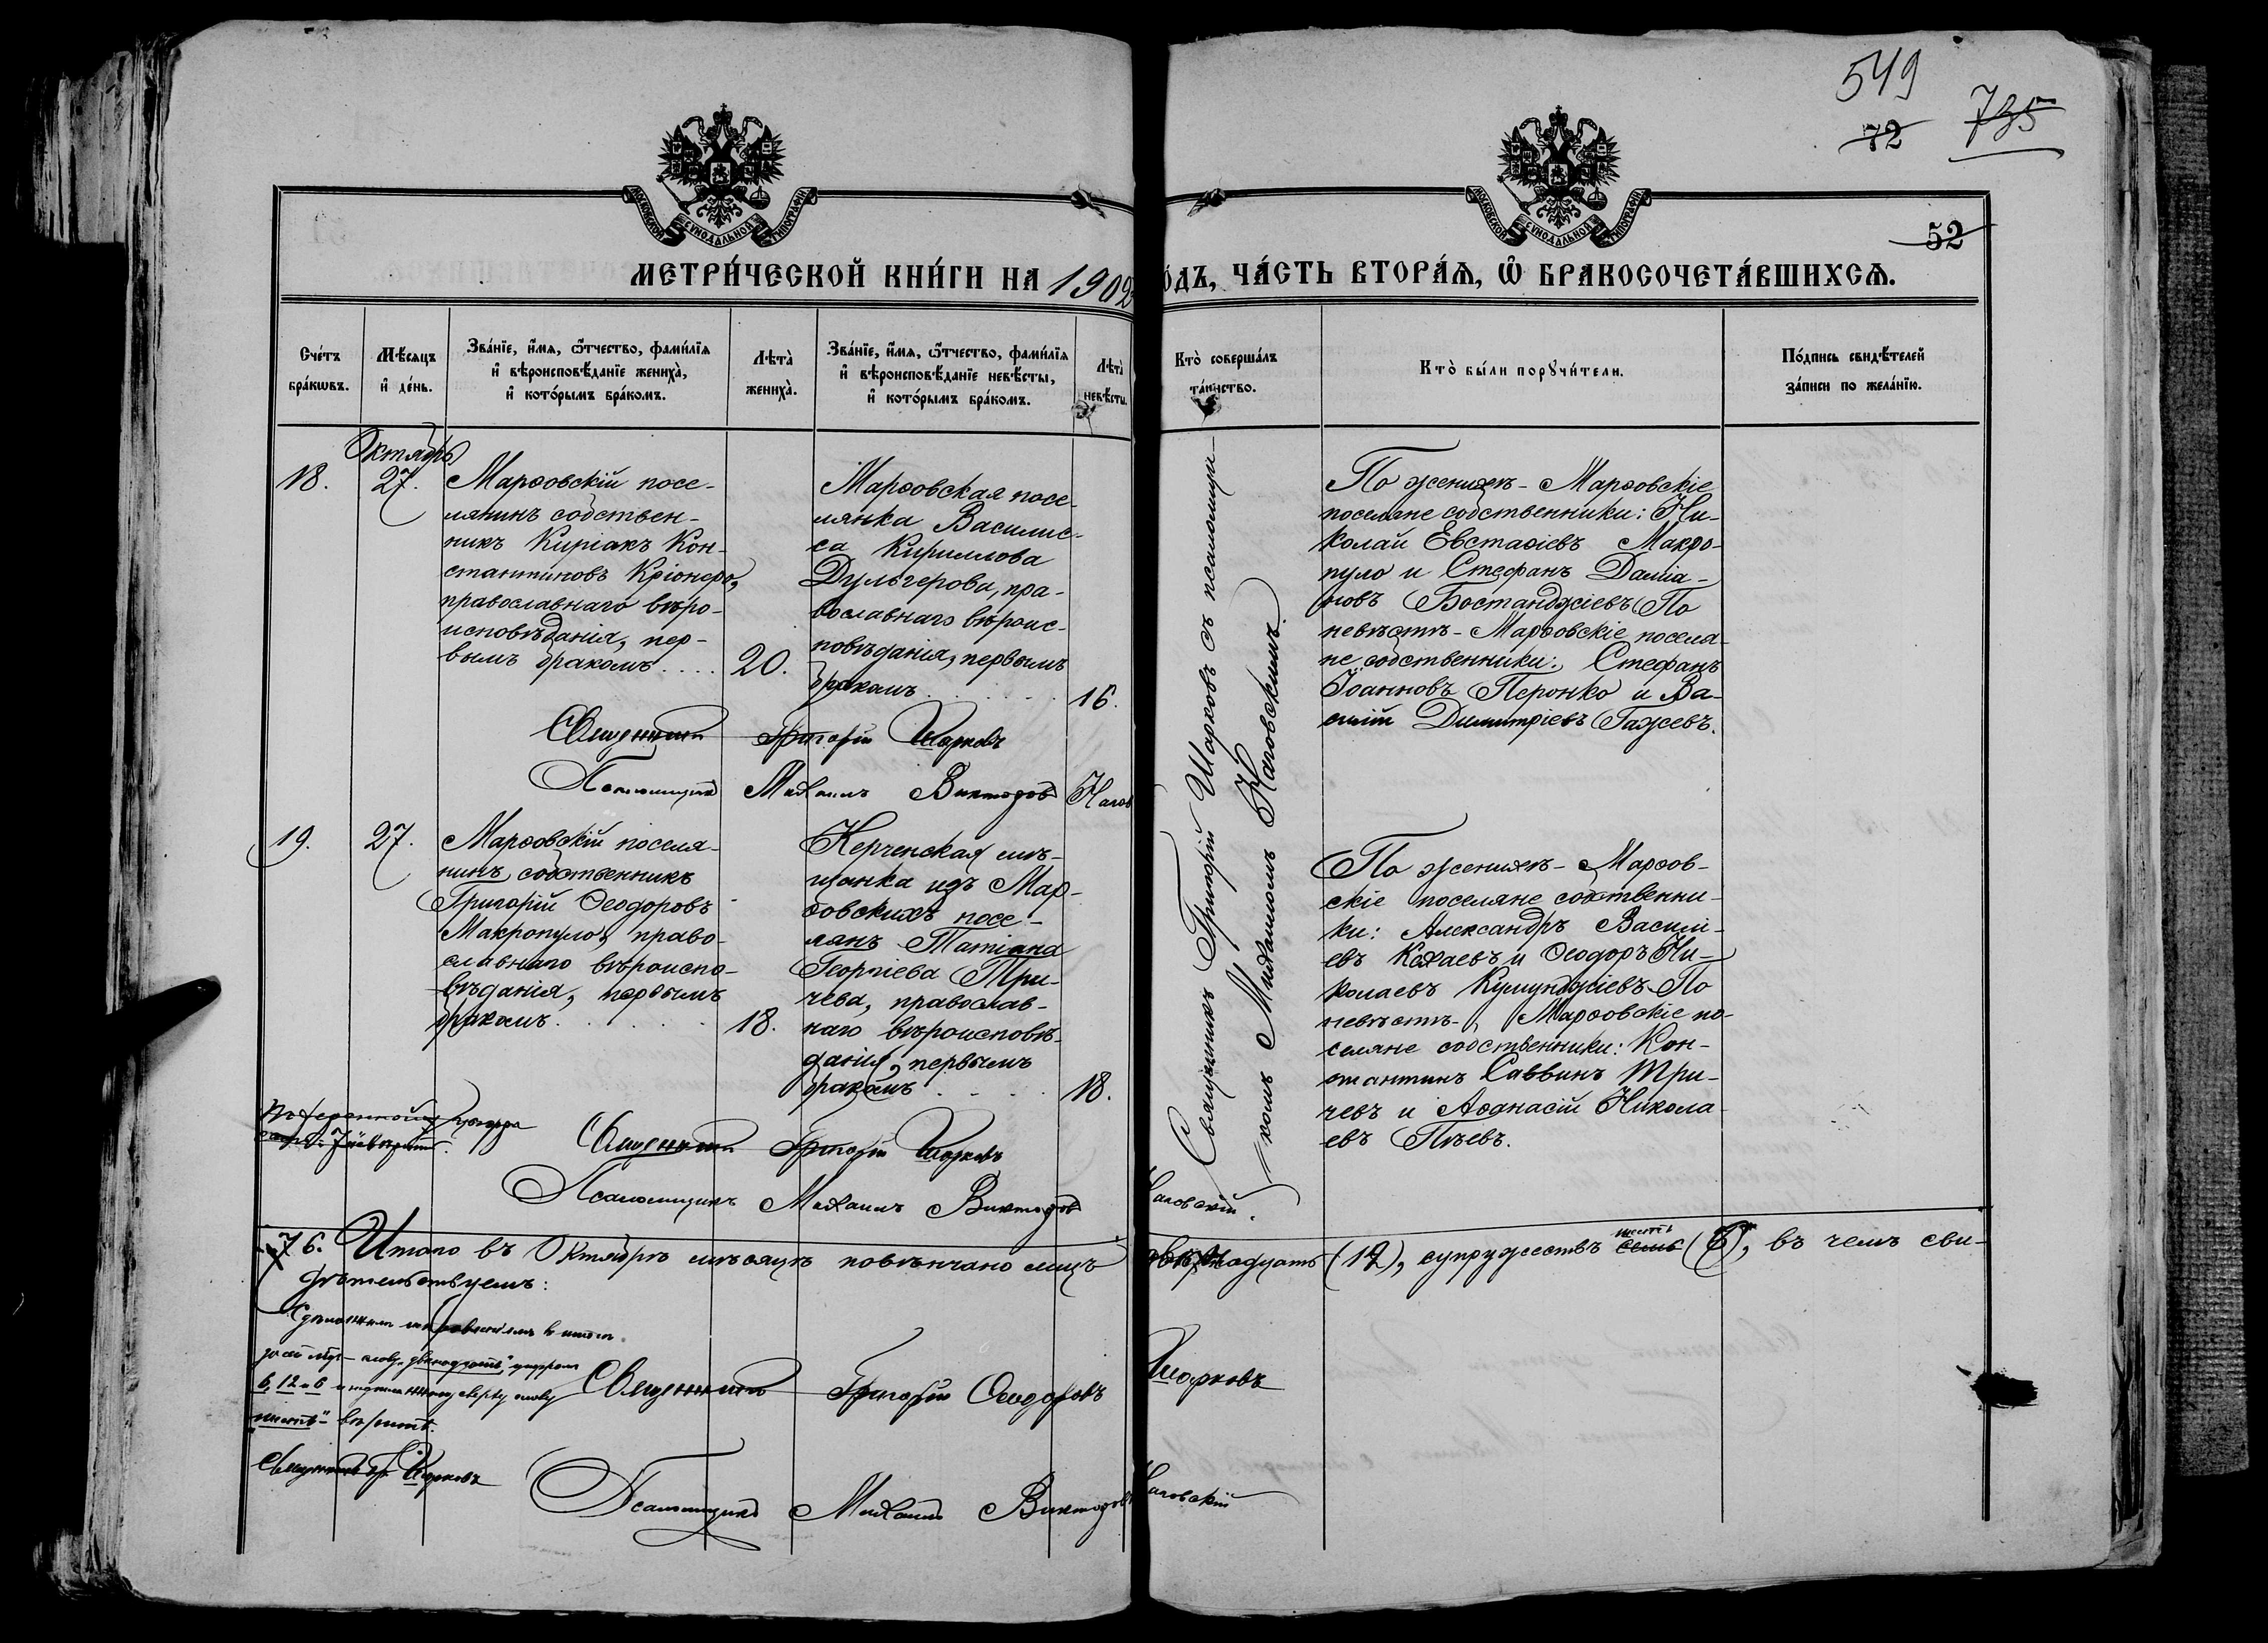 549
72 735
МОСКОВСКОЙ СѴНОДАЛЬНОЙ ТИПОГРАФІИ
МОСКОВСКОЙ СѴНОДАЛЬНОЙ ТИПОГРАФІИ
52
МЕТРИ́ЧЕСКОЙ КНИ́ГИ НА 1902
О́ДЪ, ЧА́СТЬ ВТОРА́Ѧ, Ѽ БРАКОСОЧЕТА́ВШИХСѦ.
Сче́тъ
бра́кωвъ.
Мѣ́сѧцъ
и҆ де́нь.
Зва́нїе, и҆́мѧ, ѻ҆́тчество, фами́лїѧ
и҆ вѣроисповѣ́данїе жениха̀,
и҆ кото́рымъ бра́комъ.
Лѣта̀
жениха̀.
Зва́нїе, и҆́мѧ, ѻ҆́тчество, фами́лїѧ
и҆ вѣроисповѣ́данїе невѣ́сты,
и҆ кото́рымъ бра́комъ.
Лѣта̀
невѣ́сты.
Кто̀ соверша́лъ
та́инство.
Кто̀ бы́ли порꙋчи́тели.
По́дпись свидѣ́телей
за́писи по жела́нїю.
Октябрь
18.
27.
Марѳовскій посе-
лянинъ собствен-
никъ Киріакъ Кон-
стантиновъ Кріонеро,
православнаго вѣро-
исповѣданія, пер-
вымъ бракомъ....
20.
Марѳовская посе-
лянка Василис-
са Кириллова
Дульгерова, пра-
вославнаго вѣроис-
повѣданія, первымъ
бракомъ......
16.
Священникъ Григорій Шарковъ съ псаломщи-
комъ Михаиломъ Наговскимъ.
По женихѣ - Марѳовскіе
поселяне собственники: Ни-
колай Евстаѳіевъ Макро-
пуло и Стефанъ Даміа-
новъ Бостанджіевъ. По
невѣстѣ - Марѳовскіе поселя-
не собственники: Стефанъ
Іоанновъ Перонко и Ва-
силій Димитріевъ Гажевъ.
Священникъ Григорій Шарковъ
Псаломщикъ Михаилъ Викторовъ Нагов
19.
27.
Марѳовскій поселя-
нинъ собственникъ
Григорій Ѳеодоровъ
Макропуло, право-
славнаго вѣроиспо-
вѣданія, первымъ
бракомъ......
18.
Керченская мѣ-
щанка изъ Мар-
ѳовскихъ посе-
лянъ Татіана
Георгіева Три-
чева, православ-
наго вѣроисповѣ-
данія, первымъ
бракомъ....
18.
По женихѣ - Марѳов-
скіе поселяне собственни-
ки: Александръ Василі-
евъ Кахаевъ и Ѳеодоръ Ни-
колаевъ Куюунджіевъ. По
невѣстѣ - Марѳовскіе по-
селяне собственники: Кон-
стантинъ Саввинъ Три-
чевъ и Аѳанасій Никола-
евъ Пѣевъ.
Священникъ Григорій Шарковъ
Псаломщикъ Михаилъ Викторовъ
Наговскій.
76. Итого въ Октябрѣ мѣсяцѣ повѣнчано лицъ
двѣнадцать (12), супружествъ шесть семь (6), въ чемъ сви-
дѣтельствуемъ:
слову „двѣнадцать" цифрамъ
6, 12 и 6 сверху слову
„шесть" вѣрить.
Священникъ Гр. Шарковъ
Священникъ Григорій Ѳеодоровъ
Шарковъ
Псаломщикъ Михаилъ Викторовъ
Наговскій